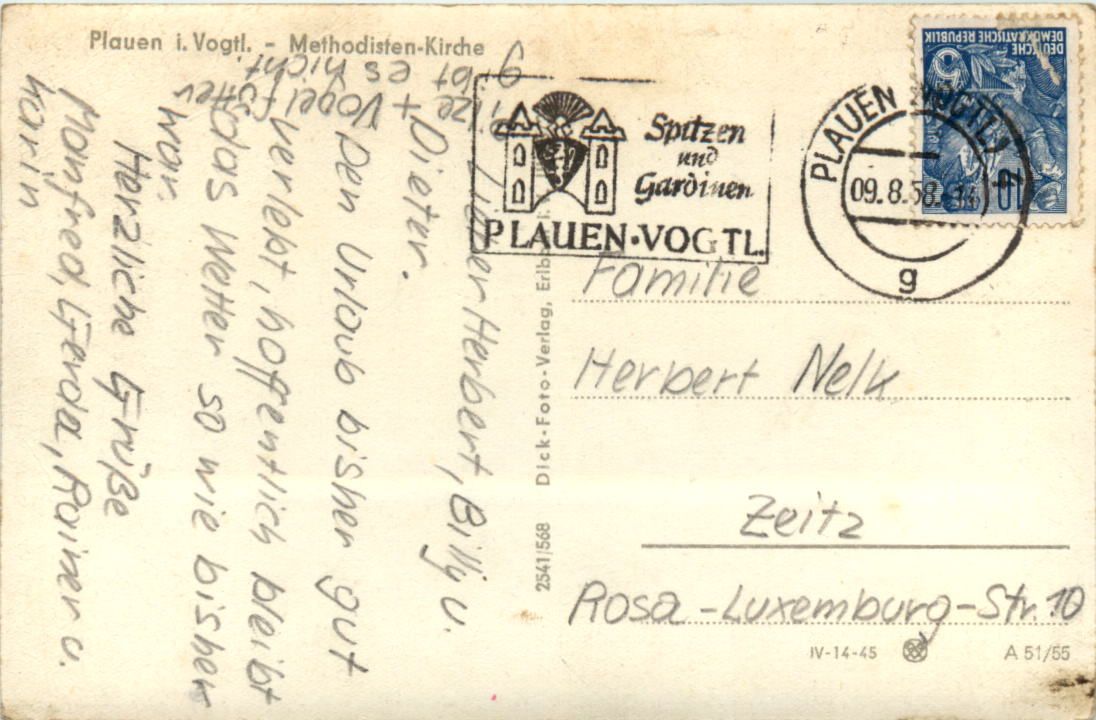 Plauen i. Vogtl. - Methodisten-Kirche
Lieber Herbert, Billy u.
Dieter.
Den Urlaub bisher gut
verlebt, hoffentlich bleibt
das Wetter so wie bisher
war.
Herzliche Grüße
Manfred, Gerda, Rainer u.
Karin
+ Vogelfutter
gibt es nicht.
Spitzen
und
Gardinen
PLAUEN·VOGTL.
PLAUEN (VOGTL) 4
09.8.58.-14
g
DEUTSCHE
DEMOKRATISCHE REPUBLIK
10
Familie
Herbert Nelk
Zeitz
Rosa-Luxemburg-Str. 10
2541/568 Dick-Foto-Verlag, Erlb
IV-14-45
A 51/55